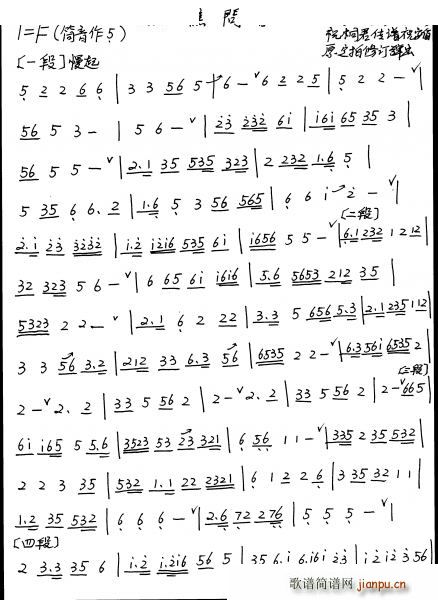 蕉 問
1=F(筒音作5)
[一段]慢起
5 2 2 6 6 | 3 3 56 5 | 6 - ∨ 6 2 2 5 | 5 2 2 - ∨ |
56 5 3 - | 5 6 - ∨ | 23 232 61 | 1161 65 35 3 |
56 5 5 - ∨ | 2.1 35 535 323 | 2 232 1.6 5 |
5 35 6 6. 2 | 1.6 5 3 56 565 | 6 6 i 2 - ∨ |
[二段]
2.1 23 3232 | 1.2 1216 535 61 | 1656 5 5 - ∨ | 6.1 232 1 2 12 |
32 323 5 6 - ∨ | 6 65 61 1616 | 5.6 5653 212 35 |
5323 2 2 - ∨ | 2.1 6 2 22 | 3.3 5 656 5.3 | 2.1 235 112 |
3 3 56 3.2 | 212 33 6.3 56 | 6535 2 2 - ∨ | 6.3 561 6535 2 |
[三段]
2 - ∨ 2. 2 | 33 5 56 2 | 2 - ∨ 2. 2 | 33 5 56 2 | 2 - ∨ 665 |
61 165 5 5.6 | 3523 53 23 321 | 6 56 1 1 - ∨ | 335 2 35 532 |
2 2 3 35 | 532 1.1 22 2321 | 6 1 2 2 6 | 3 35 32 1 1 |
1.2 35 532 | 6 6 6 - ∨ | 2.6 72 276 | 5 5 5 - ∨ |
[四段]
2 3.3 35 6 | 1.2 1.216 56 5 | 35 6.1 6.161 23 | 1 2 12 3 56 |
歌谱简谱网 jianpu.cn